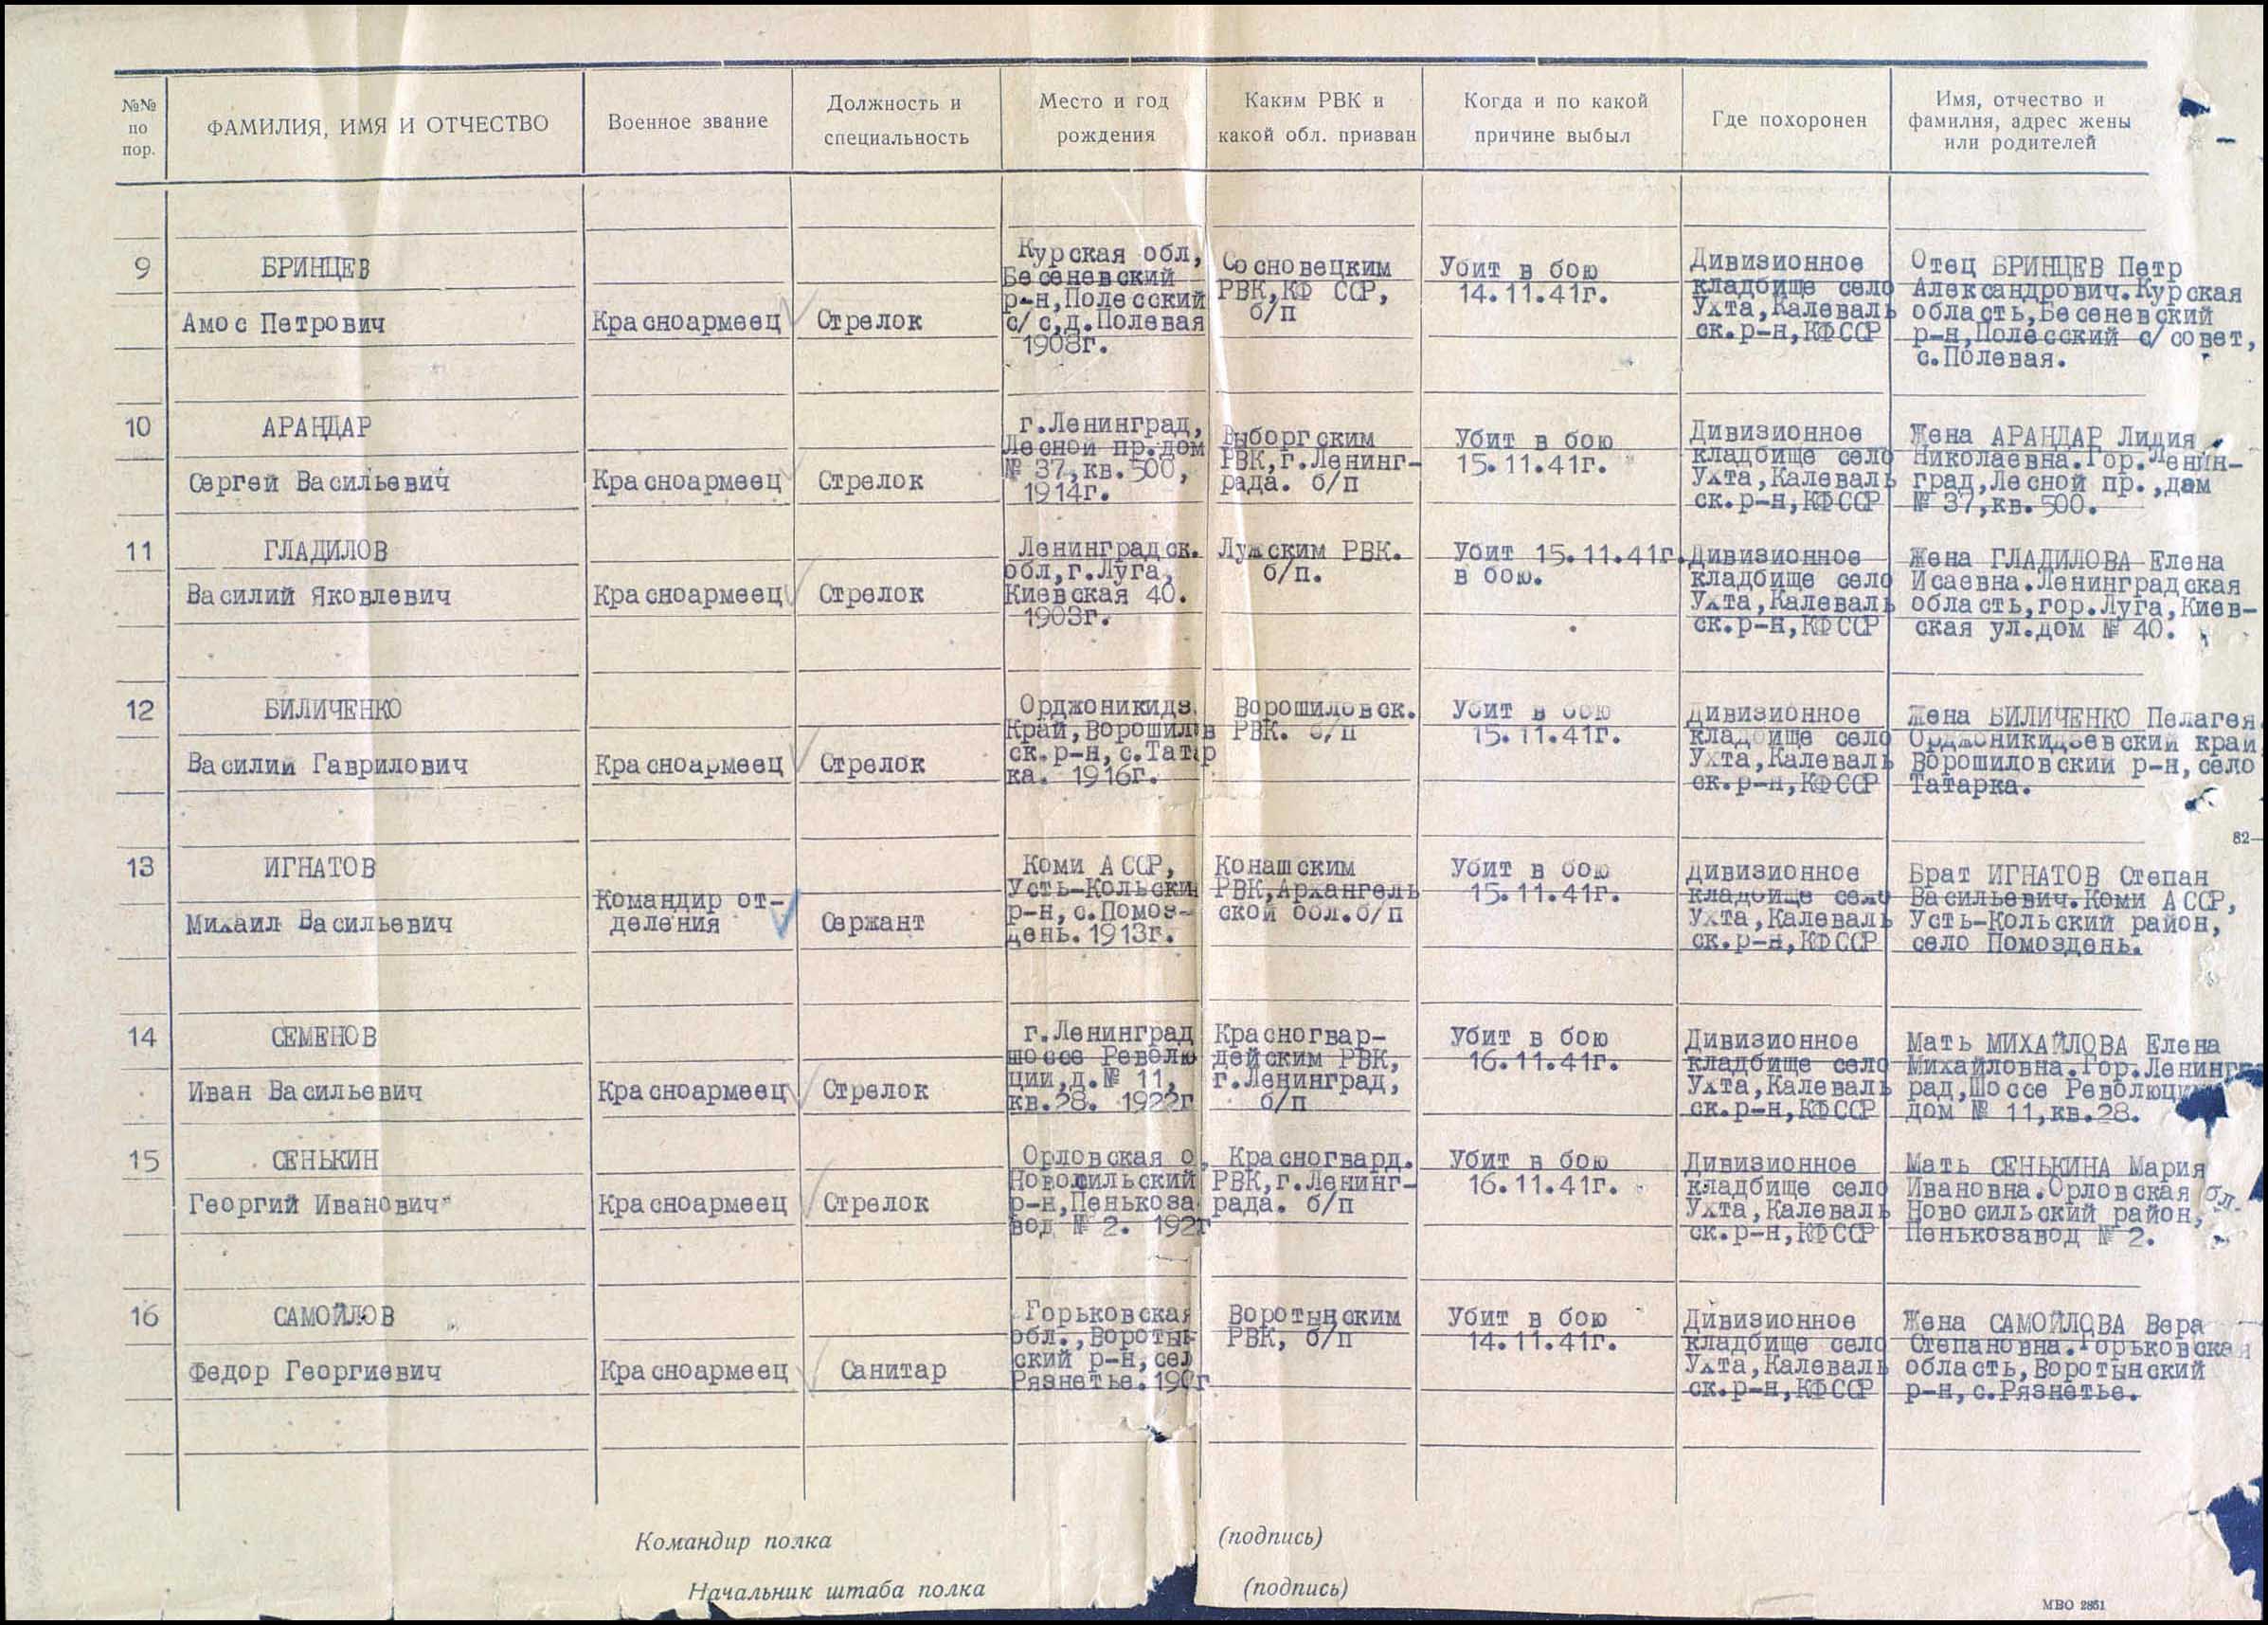 №№
по
пор.
ФАМИЛИЯ, ИМЯ И ОТЧЕСТВО
Военное звание
Должность и
специальность
Место и год
рождения
Каким РВК и
какой обл. призван
Когда и по какой
причине выбыл
Где похоронен
Имя, отчество и
фамилия, адрес жены
или родителей
9
БРИНЦЕВ
Амос Петрович
Красноармеец
Стрелок
Курская обл,
Бесеневский
р-н,Полесский
с/с,д.Полевая
1908г.
Сосновецким
РВК,КФ ССР,
б/п
Убит в бою
14.11.41г.
Дивизионное
кладбище село
Ухта,Калеваль
ск.р-н,КФССР
Отец БРИНЦЕВ Петр
Александрович.Курская
область,Бесеневский
р-н,Полесский с/совет,
с.Полевая.
10
АРАНДАР
Сергей Васильевич
Красноармеец
Стрелок
г.Ленинград,
Лесной пр.дом
№ 37,кв.500,
1914г.
Выборгским
РВК,г.Ленинг-
рада. б/п
Убит в бою
15.11.41г.
Дивизионное
кладбище село
Ухта,Калеваль
ск.р-н,КФССР
Жена АРАНДАР Лидия
Николаевна.Гор.Ленин-
град,Лесной пр.,дом
№ 37,кв.500.
11
ГЛАДИЛОВ
Василий Яковлевич
Красноармеец
Стрелок
Ленинградск.
обл,г.Луга,
Киевская 40.
1903г.
Лужским РВК.
б/п.
Убит 15.11.41г.
в бою.
Дивизионное
кладбище село
Ухта,Калеваль
ск.р-н,КФССР
Жена ГЛАДИЛОВА Елена
Исаевна.Ленинградская
область,гор.Луга,Киев-
ская ул.дом № 40.
12
БИЛИЧЕНКО
Василий Гаврилович
Красноармеец
Стрелок
Орджоникидз.
Край,Ворошилов
ск.р-н,с.Татар
ка. 1916г.
Ворошиловск.
РВК. б/п
Убит в бою
15.11.41г.
Дивизионное
кладбище село
Ухта,Калеваль
ск.р-н,КФССР
Жена БИЛИЧЕНКО Пелагея
Орджоникидзевский край
Ворошиловский р-н,село
Татарка.
82-
13
ИГНАТОВ
Михаил Васильевич
Командир от-
деления
Сержант
Коми АССР,
Усть-Кольский
р-н,с.Помоз-
день. 1913г.
Конашским
РВК,Архангель
ской обл.б/п
Убит в бою
15.11.41г.
Дивизионное
кладбище село
Ухта,Калеваль
ск.р-н,КФССР
Брат ИГНАТОВ Степан
Васильевич.Коми АССР,
Усть-Кольский район,
село Помоздень.
14
СЕМЕНОВ
Иван Васильевич
Красноармеец
Стрелок
г.Ленинград
шоссе Револю
ции,д.№ 11,
кв.28. 1922г
Красногвар-
дейским РВК,
г.Ленинград,
б/п
Убит в бою
16.11.41г.
Дивизионное
кладбище село
Ухта,Калеваль
ск.р-н,КФССР
Мать МИХАЙЛОВА Елена
Михайловна.Гор.Ленинг
рад,Шоссе Революции
дом № 11,кв.28.
15
СЕНЬКИН
Георгий Иванович
Красноармеец
Стрелок
Орловская о,
Новосильский
р-н,Пенькоза
вод № 2.
Красногвард.
РВК,г.Ленинг-
рада. б/п
Убит в бою
16.11.41г.
Дивизионное
кладбище село
Ухта,Калеваль
ск.р-н,КФССР
Мать СЕНЬКИНА Мария
Ивановна.Орловская бл.
Новосильский район,
Пенькозавод № 2.
16
САМОЙЛОВ
Федор Георгиевич
Красноармеец
Санитар
Горьковская
обл.,Вороты
ский р-н,сел
Рязнетье.
Воротынским
РВК, б/п
Убит в бою
14.11.41г.
Дивизионное
кладбище село
Ухта,Калеваль
ск.р-н,КФССР
Жена САМОЙЛОВА Вера
Степановна.Горьковская
область,Воротынский
р-н,с.Рязнетье.
Командир полка
(подпись)
Начальник штаба полка
(подпись)
МВО 2851